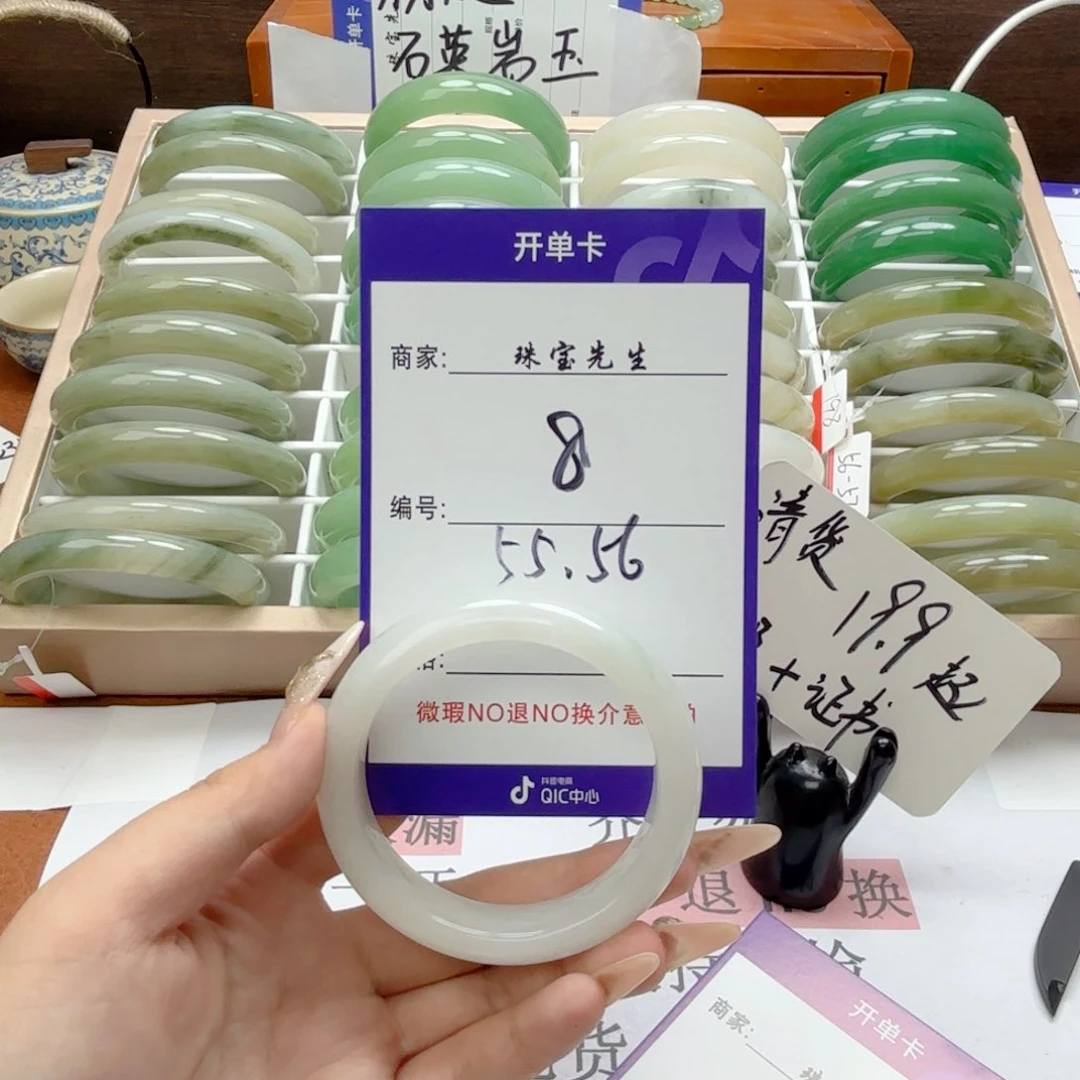 开单卡
石英岩玉
开单卡
商家: 珠宝先生
8
编号:
55.56
微瑕NO退NO换介意
抖音电商
QIC中心
198
清货
19.9起
+证书
漏
退
换
开单卡
商家:
货